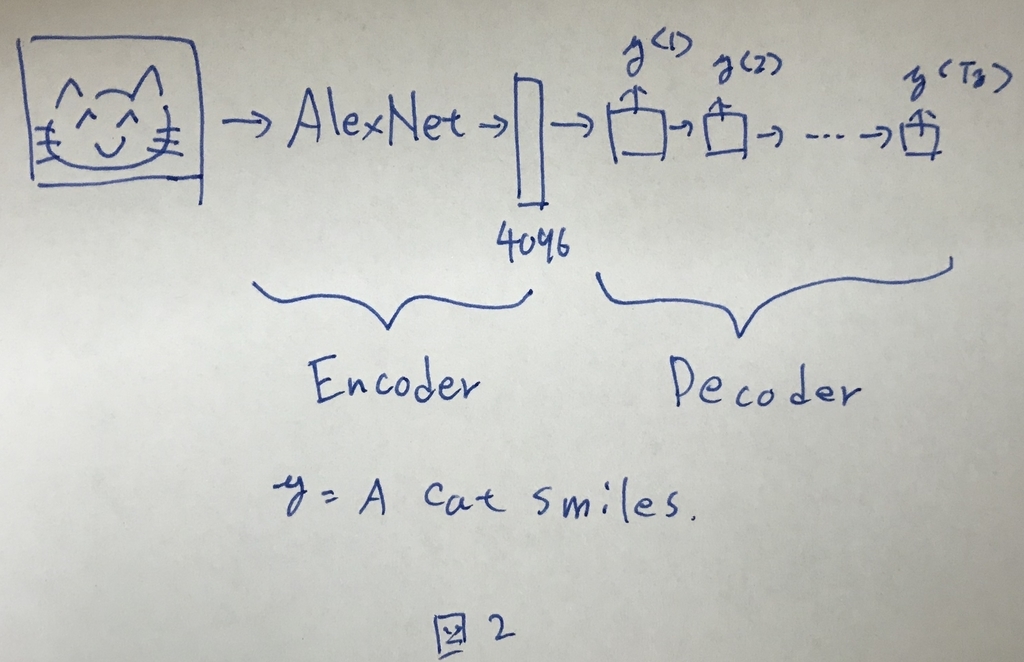 y<1> y<2> y<Ty>
→ AlexNet → → → → ... →
4096
Encoder Decoder
y = A cat smiles.
図 2